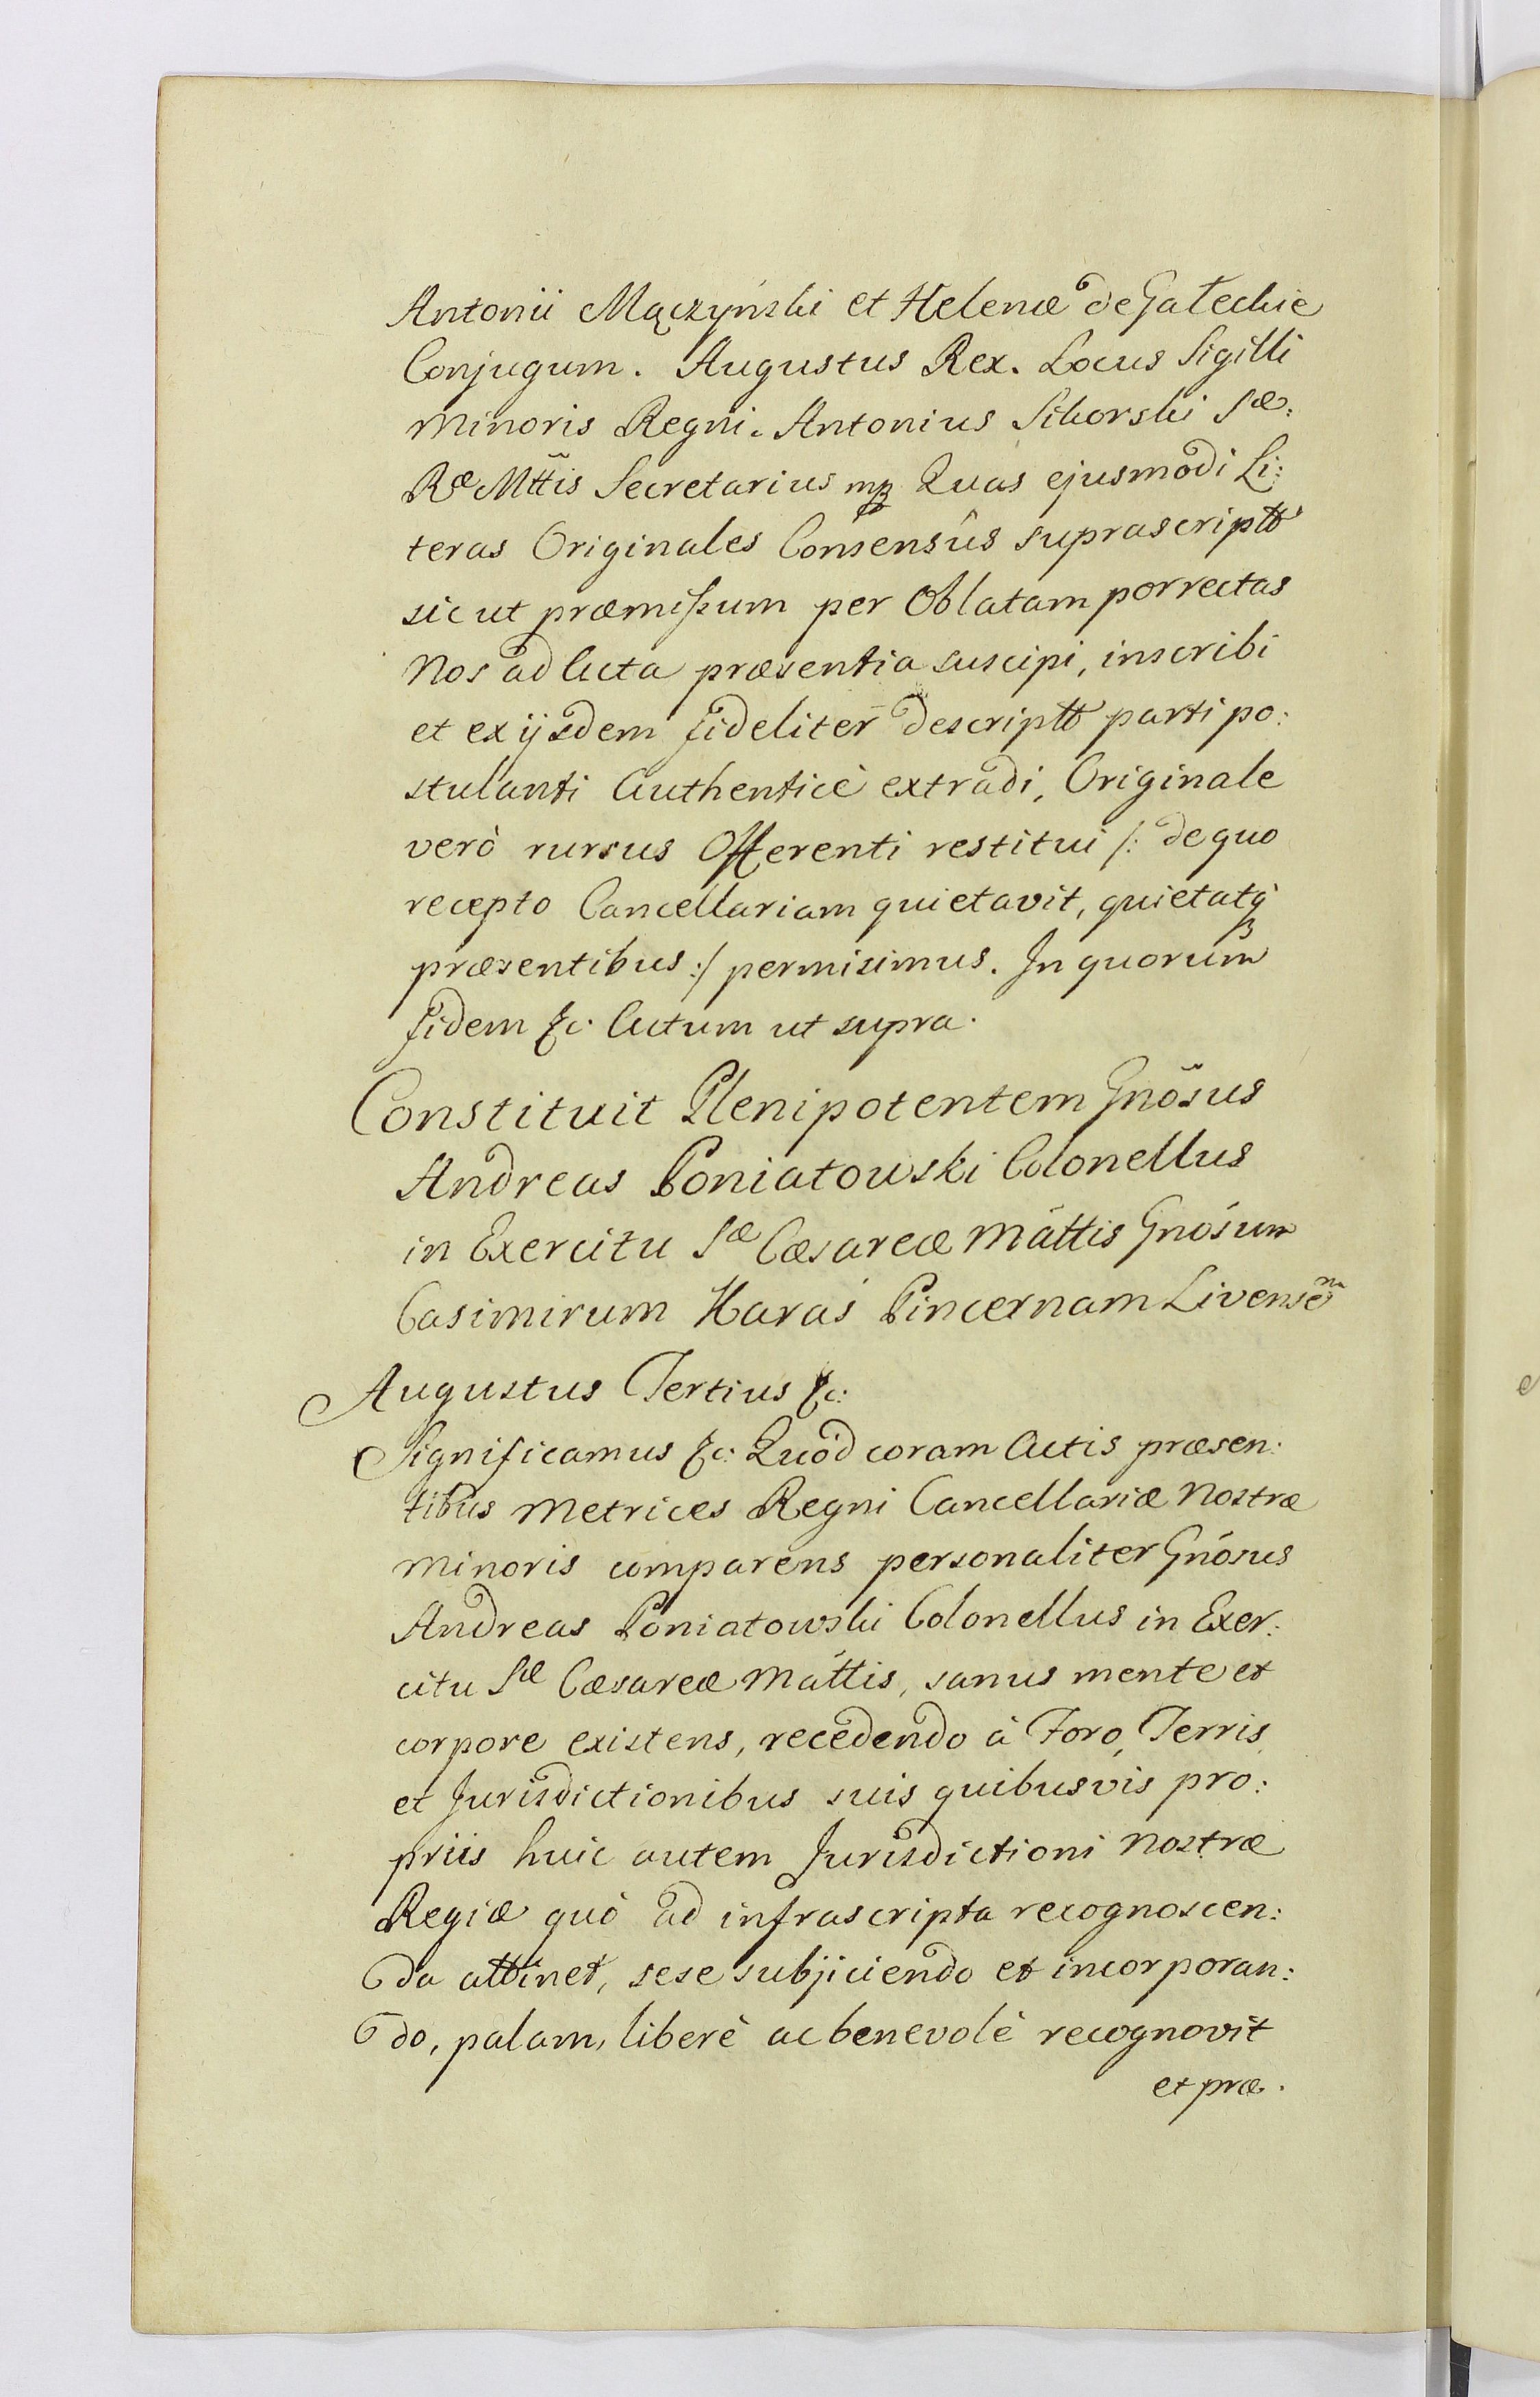 Antonii Mączyński et Helenæ de Gałeckie
Conjugum. Augustus Rex. Locus Sigilli
Minoris Regni. Antonius Sikorski Sæ:
Ræ Mttis Secretarius mp Quas ejusmodi Li:
teras Originales Consensûs suprascriptt
sic ut præmissum per Oblatam porrectas
Nos ad Acta præsentia suscipi, inscribi
et ex ijsdem fideliter descriptt parti po:
stulanti Authenticè extradi, Originale
verò rursus Offerenti restitui /: de quo
recepto Cancellariam quietavit, quietatq́
præsentibus :/ permisimus. In quorum
fidem &c. Actum ut supra.
Constituit Plenipotentem Gnōsus
Andreas Poniatowski Colonellus
in Exercitu Sæ Cæsareæ Mattis Gnōsum
Casimirum Karaś Pincernam Livensēm
Augustus Tertius &c:
Significamus &c: Quòd coram Actis præsen:
tibus Metrices Regni Cancellariæ Nostræ
Minoris comparens personaliter Gnōsus
Andreas Poniatowski Colonellus in Exer:
citu Sæ Cæsareæ Mattis, sanus mente et
corpore existens, recedendo à Foro, Terris
et Jurisdictionibus suis quibusvis pro:
priis huic autem Jurisdictioni Nostræ
Regiæ quò ad infrascripta recognoscen:
da attinet, sese subjiciendo et incorporan:
do, palam, liberè ac benevolè recognovit
et præ.